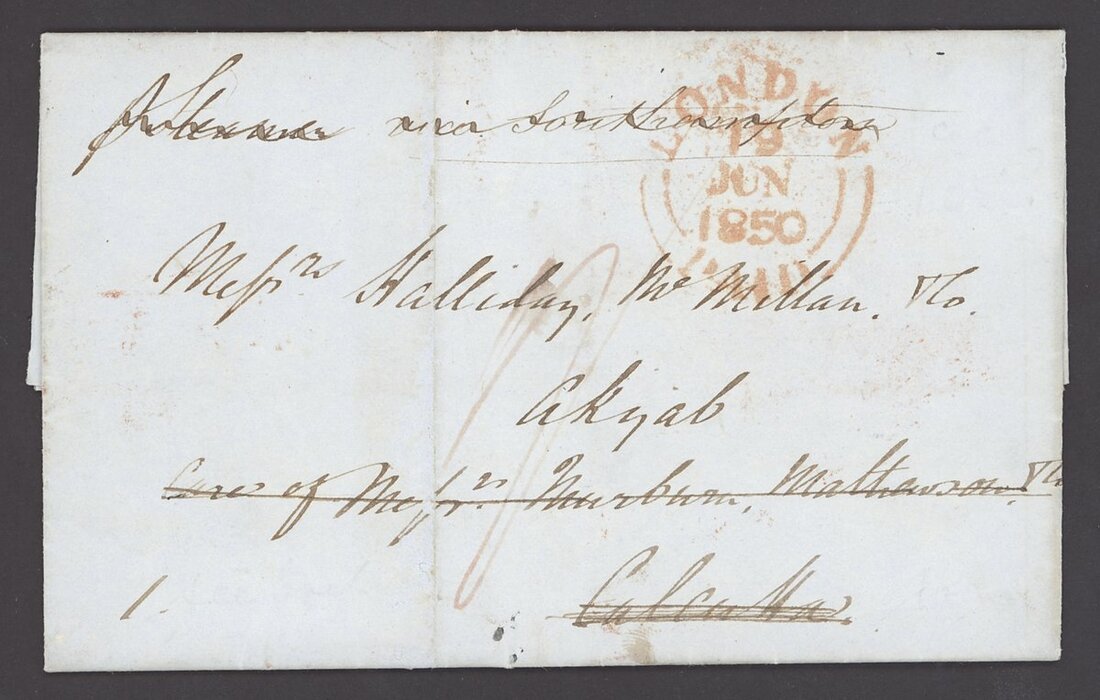 p Steamer via Southampton
LONDON
19
JUN
1850
PAID
Messrs Halliday, Mc Millan. & Co.
Akyab
Care of Messrs Mathewson. & Co
1
Calcutta.